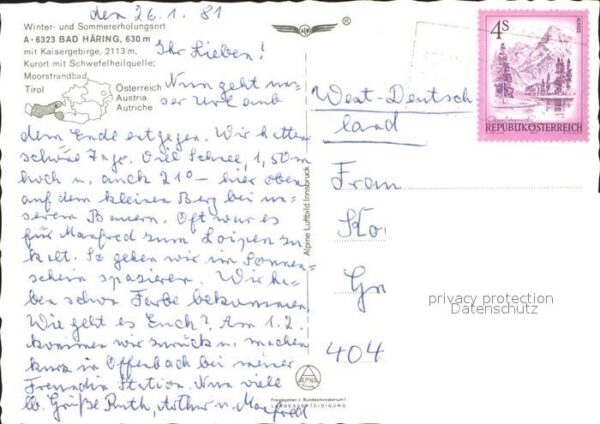 den 26.1.81
Winter- und Sommererholungsort
A-6323 BAD HÄRING, 630 m
mit Kaisergebirge, 2113 m,
Kurort mit Schwefelheilquelle;
Moorstrandbad,
Tirol
Österreich
Austria
Autriche
Ihr Lieben!
Nun geht un=
ser Url.
dem Ende entgegen. Wir hatten
schöne Tage. Viel Schnee, 1,50 m
hoch u. auch 210 - hier oben
auf dem kleinen Berg bei un=
serem Bauern. Oft war es
für Manfred zum Loipen zu
kalt. So gehen wir im Sonnen=
schein spazieren. Wir ha=
ben schon Farbe bekommen.
Wie geht es Euch? Am 1.2.
kommen wir zurück u. machen
kurz in Offenbach bei meiner
Freundin Station. Nun viele
lb. Grüße Ruth, Arthur u. Manfred
Alpine Luftbild Innsbruck
®
4s
REPUBLIK ÖSTERREICH
West-Deutsch
land
Frau
Ko
Gn
404
privacy protection
Datenschutz
ALPINE
Freigegeben v. Bundesministerium f.
LANDESVERTEIDIGUNG